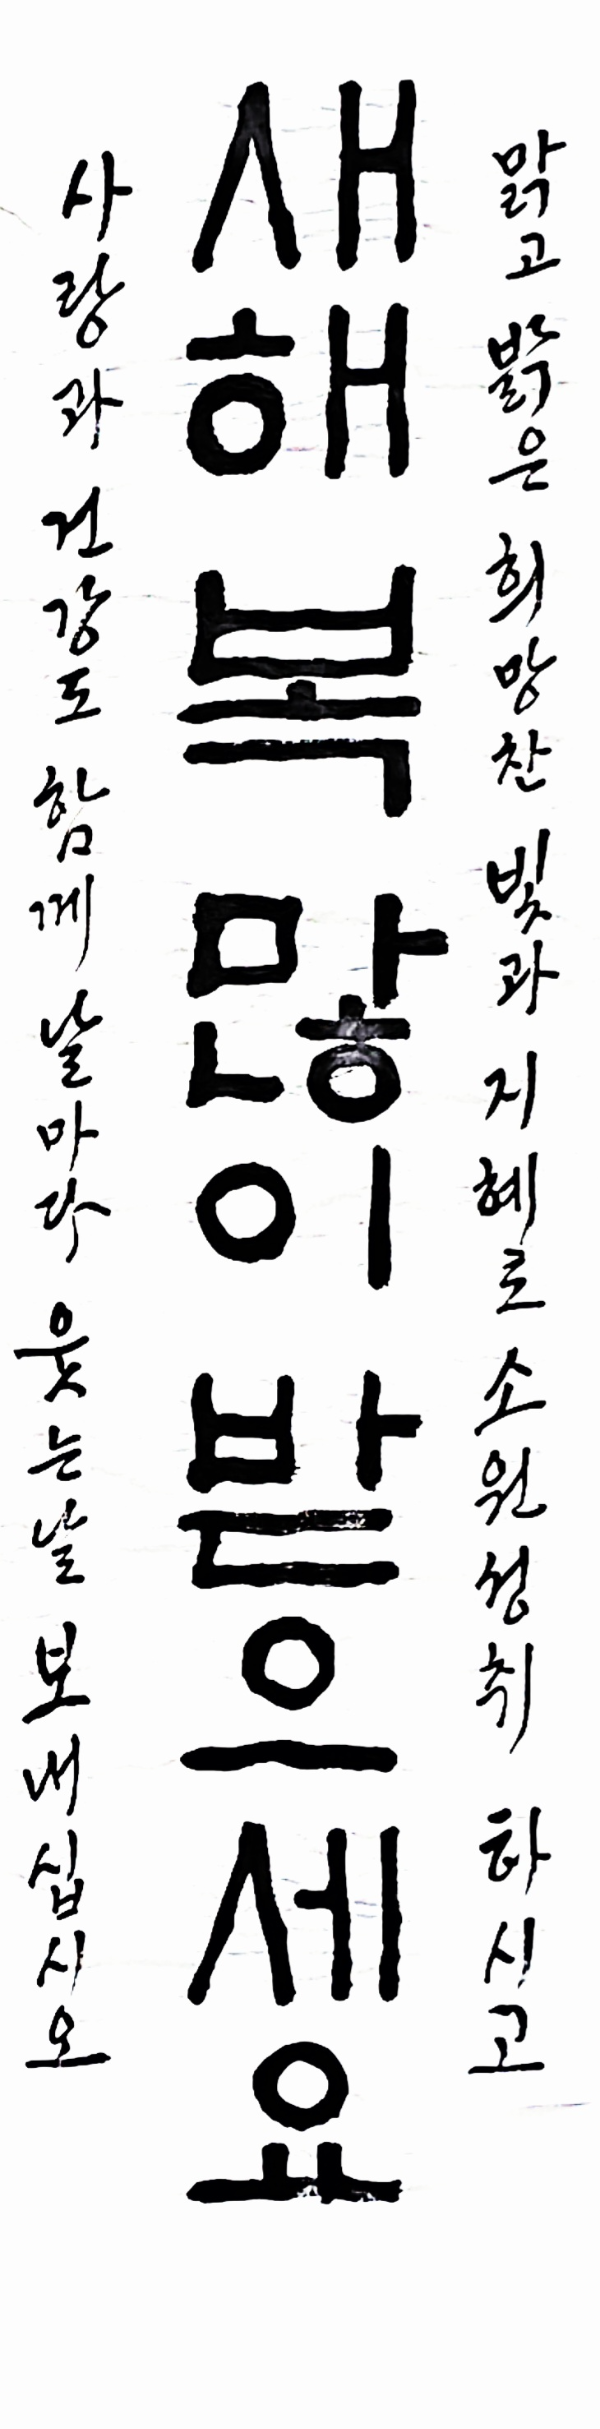 맑고 밝은 희망찬 빛과 지혜로 소원성취 하시고
새해 복 많이 받으세요
사랑과 건강도 함께 날마다 웃는날 보내십시오